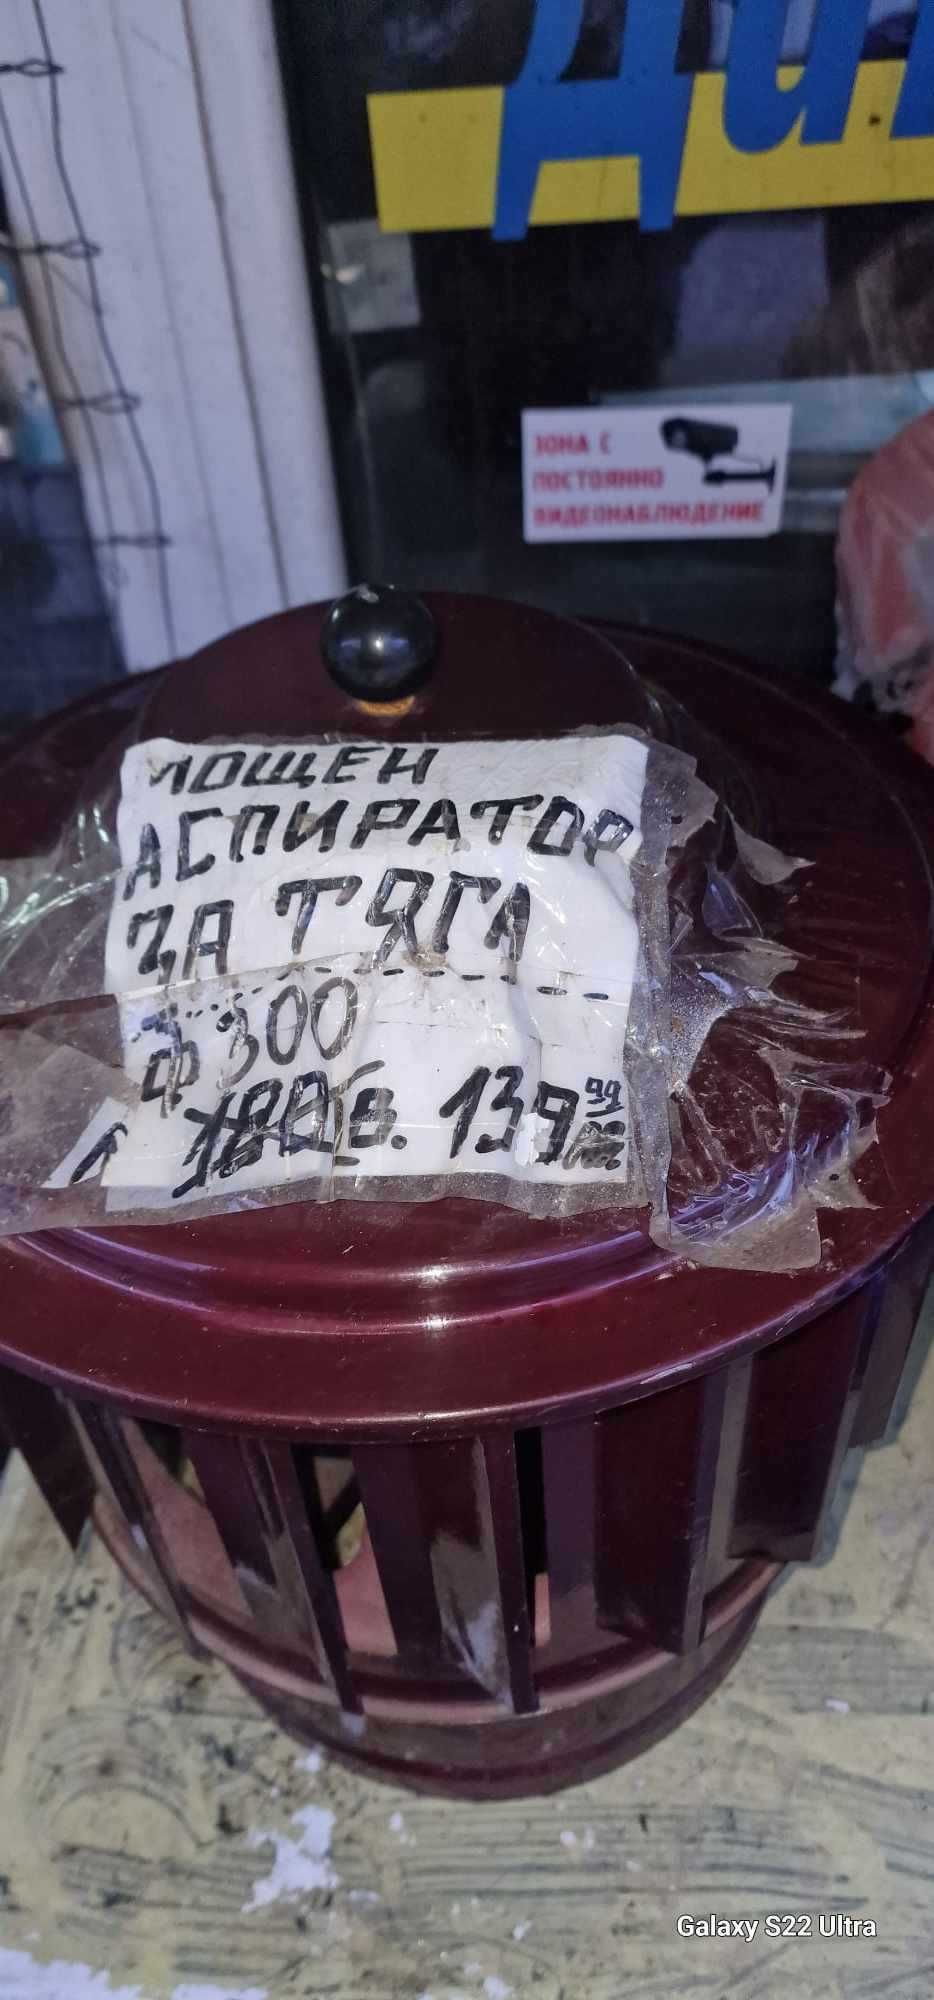 ЗОНА С
ПОСТОЯННО
ВИДЕОНАБЛЮДЕНИЕ
МОЩЕН
АСПИРАТОР
ЗА ТЯГА
Ф300
139 99
Galaxy S22 Ultra